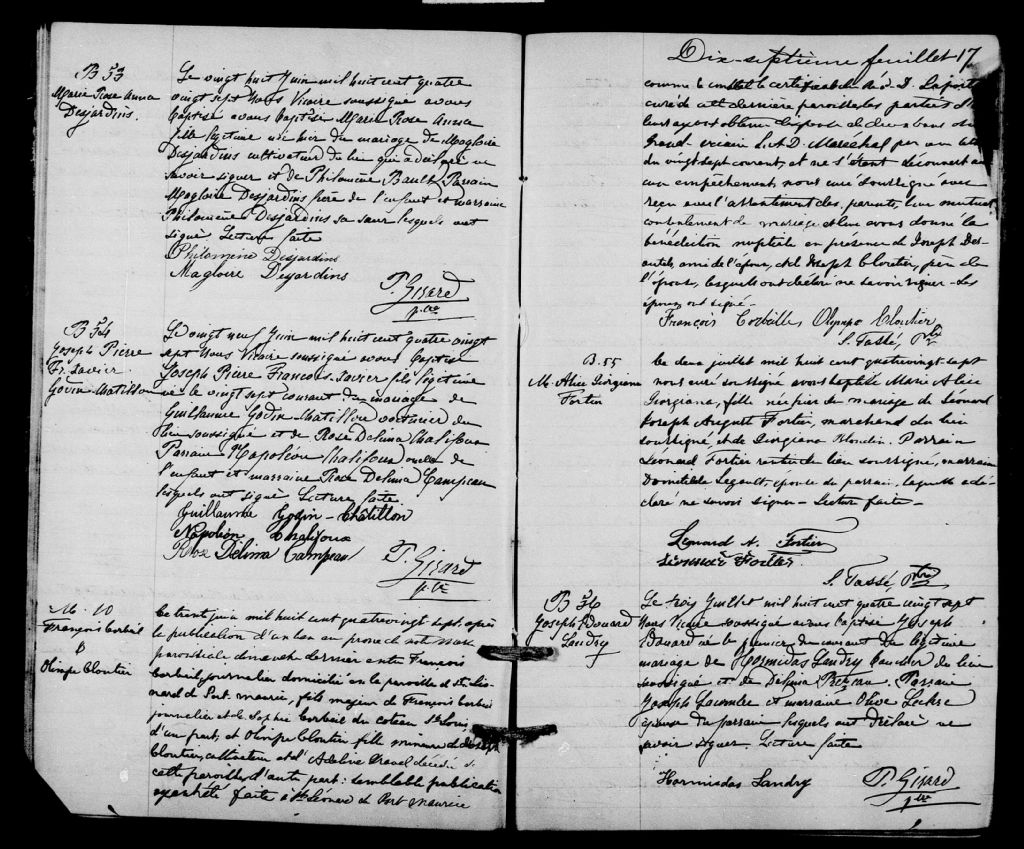 B 53
Marie Rose Anna
Desjardins.
Le vingt huit Juin mil huit cent quatre
vingt sept Nous Vicaire soussigné avons
baptisé avons baptisé Marie Rose Anna
fille légitime née hier du mariage de Magloire
Desjardins cultivateur du lieu qui a déclaré ne
savoir signer et de Philomène Bault. Parrain
Magloire Desjardins frère de l'enfant et marraine
Philomène Desjardins sa sœur lesquels ont
signé Lecture faite
Philomène Desjardins
Magloire Desjardins
T. Girard
ptre
B 54
Joseph Pierre
Fr. Xavier
Godin-Chatillon
Le vingt neuf Juin mil huit cent quatre vingt
sept Nous Vicaire soussigné avons baptisé
Joseph Pierre François Xavier fils légitime
né le vingt sept courant du mariage de
Guillaume Godin-Chatillon voiturier du
lieu soussigné et de Rose Delima Chalifoux
Parrain Napoléon Chalifoux oncle de
l'enfant et marraine Rose Delima Campeau
lesquels ont signé Lecture faite
Guillaume Godin-Chatillon
Napoléon Chalifoux
Rose Délima Campeau
T. Girard
ptre
M. 10
François Corbeil
&
Olimpe Cloutier
Le trente juin mil huit cent quatrevingt sept, après
la publication d'un ban au prone de notre messe
paroissiale dimanche dernier entre François
Corbeil, journalier domicilié en la paroisse de St. Léo-
nard de Port-maurice, fils majeur de François Corbeil
journalier et de Sophie Corbeil du coteau St Louis
d'un part, et Olimpe Cloutier fille mineure de Joseph
Cloutier, cultivateur et d'Adeline
cette paroisse d'autre part: semblable publication
ayant été faite à St Léonard de Port Maurice
Dix-septième feuillet 17
comme le constate le certificat de
curé de cette dernière paroisse les parties
ayant obtenu dispense de deux bans du
Grand-vicaire L. A. D. Maréchal par un acte
du vingt sept courant, et ne s'étant découvert au-
cun empêchement, nous curé soussigné avons
reçu avec l'assentiment des parents, leur mutuel
consentement de mariage et leur avons donné la
bénédiction nuptiale en présence de Joseph Des-
autels, ami de l'époux, et de Joseph Cloutier, père de
l'épouse, lesquels ont déclaré ne savoir signer. Les
époux ont signé.
François Corbille Olympe Cloutier
S. Tassé, Ptre
B. 55
M. Alice Georgiana
Fortier
Le deux juillet mil huit cent quatrevingt-sept
nous curé soussigné avons baptisé Marie Alice
Georgiana, fille née hier du mariage de Léonard
Joseph August Fortier, marchand du lieu
soussigné, et de Georgiana Blondin. Parrain
Léonard Fortier rentier du lieu soussigné, marraine
Domitilde Legault, épouse du parrain, laquelle a dé-
claré ne savoir signer - Lecture faite -
Leonard A. Fortier
Léonard Fortier
S. Tassé Ptre
B 56
Joseph Edouard
Landry
Le trois Juillet mil huit cent quatre vingt sept
Nous Vicaire soussigné avons baptisé Joseph
Edouard né le premier du courant du légitime
mariage de Hormidas Landry du lieu
soussigné et de Delima Parrain
Joseph Lacombe et marraine Olive Leclerc
épouse du parrain lesquels ont déclaré ne
savoir signer. Lecture faite
Hormisdas Landry
T. Girard
ptre